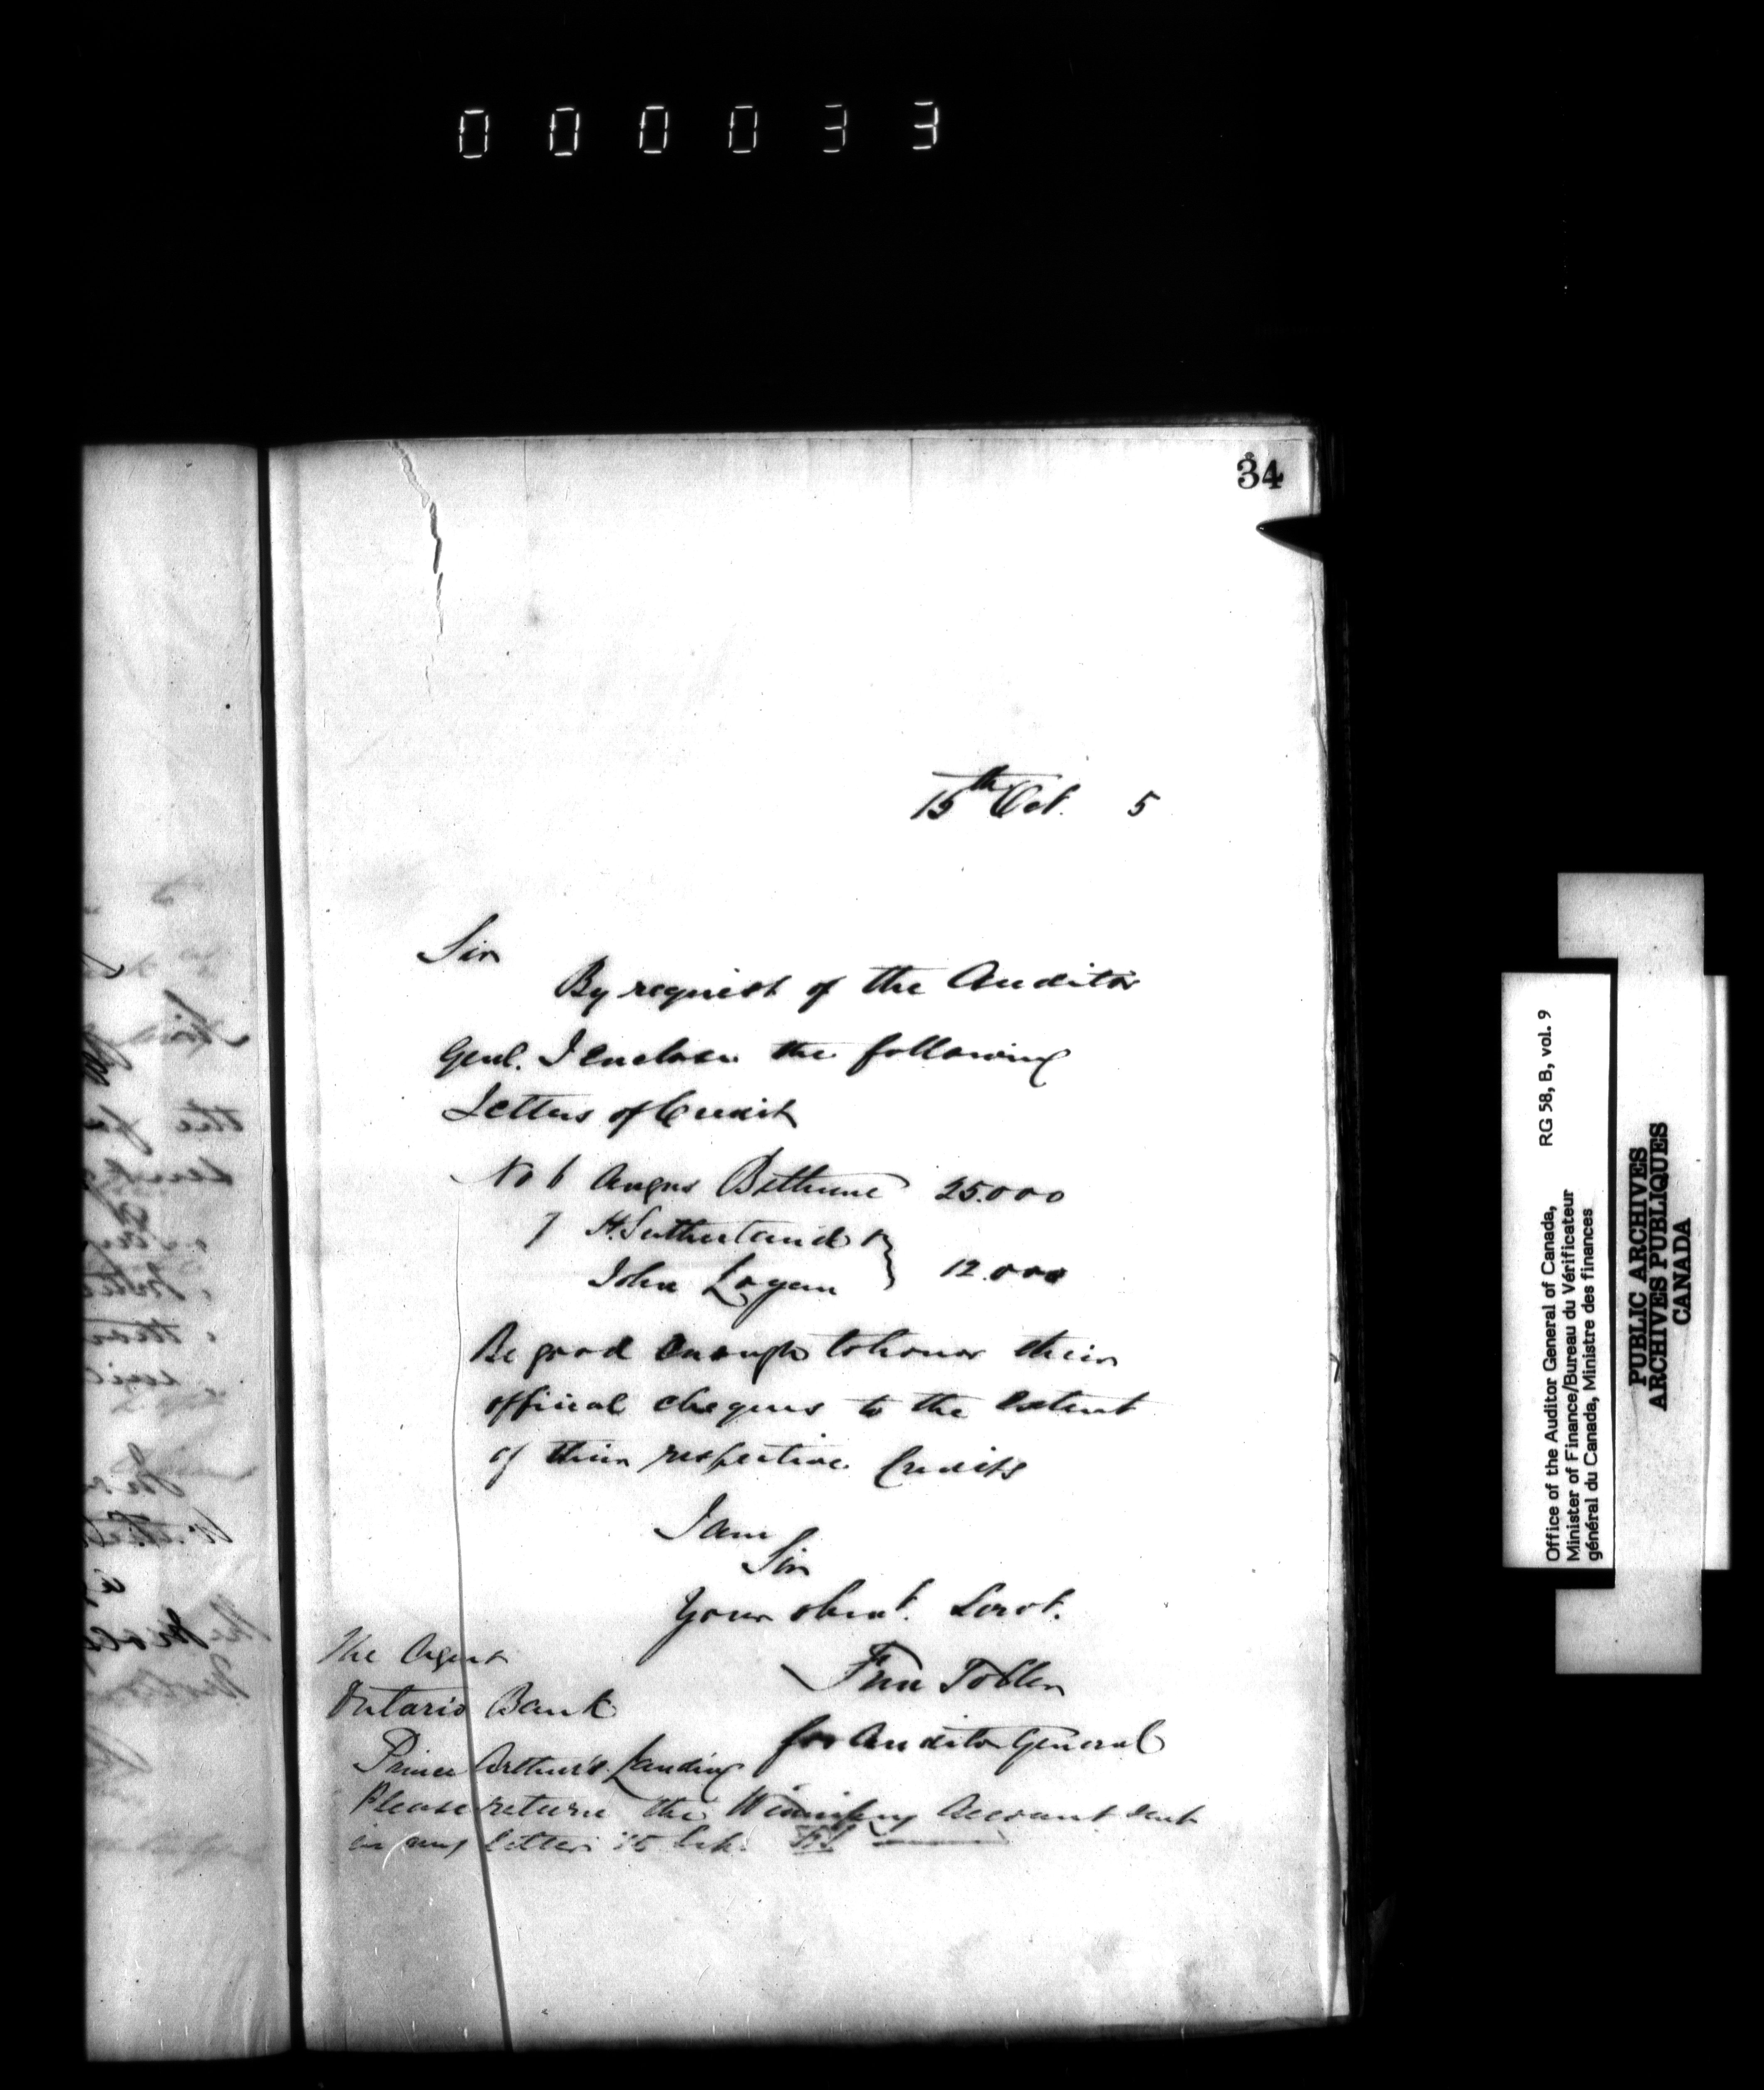 000033
34
15th Oct. 5
Sir
By request of the Auditor
Genl. I enclose the following
Letters of Credit
No 6 Angus Bethune 25.000
7 H. Sutherland &
John Logan } 12.000
Be good enough to honor their
official cheques to the extent
of their respective Credits
I am
Sir
Your obent. Servt.
for Auditor General
The Agent
Ontario Bank
Prince Arthur's Landing
Please return the Winnipeg Account sent
in my letter
RG 58, B, vol. 9
Office of the Auditor General of Canada,
Minister of Finance/Bureau du Vérificateur
général du Canada, Ministre des finances
PUBLIC ARCHIVES
ARCHIVES PUBLIQUES
CANADA